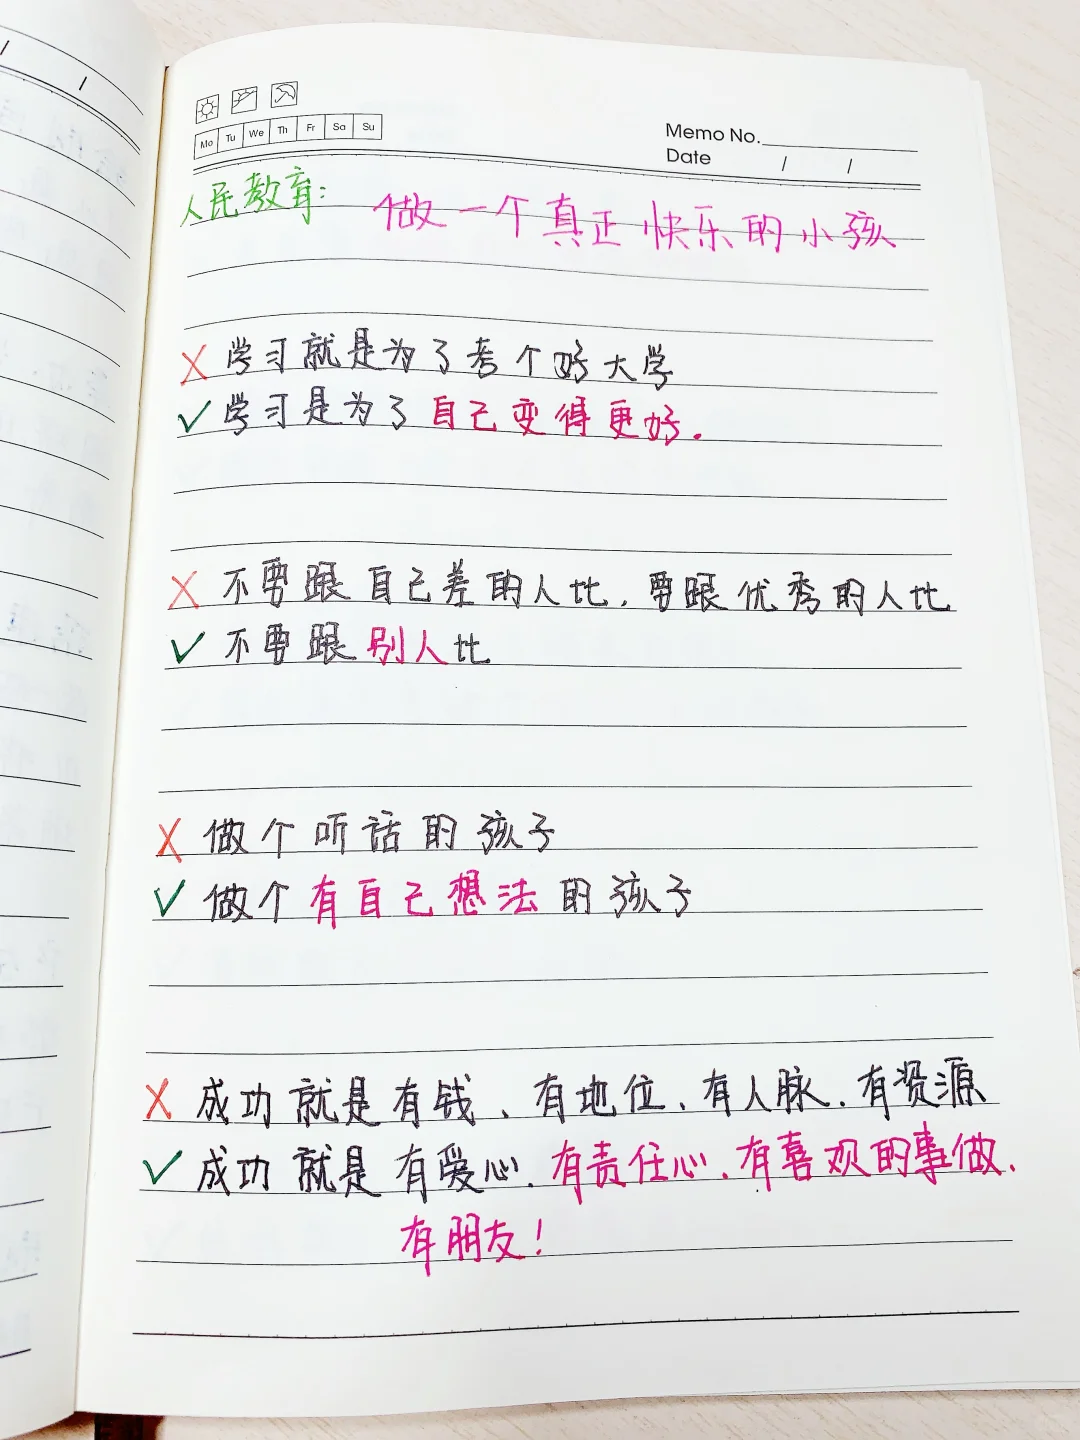 Mo Tu We Th Fr Sa Su
Memo No.
Date / /
人民教育: 做一个真正快乐的小孩
X 学习就是为了考个好大学
✓ 学习是为了自己变得更好.
X 不要跟自己差的人比,要跟优秀的人比
✓ 不要跟别人比
X 做个听话的孩子
✓ 做个有自己想法的孩子
X 成功就是有钱、有地位、有人脉、有资源
✓ 成功就是有爱心、有责任心、有喜欢的事做、
有朋友!